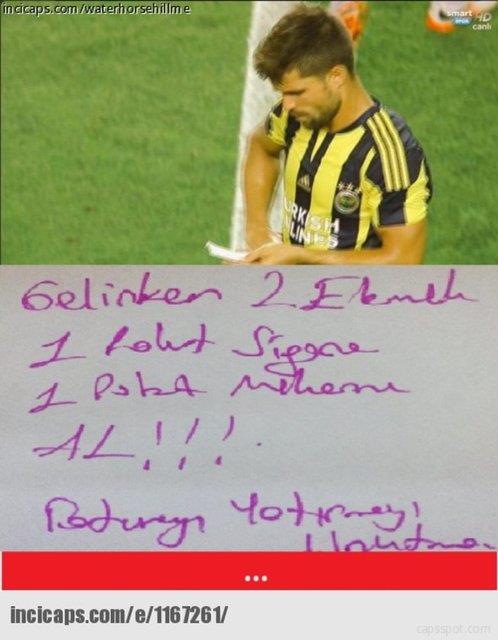 incicaps.com/waterhorsehillme
smart
SPOR HD
canlı
TURKISH
AIRLINES
Gelirken 2 Ekmek
1 Paket Sigara
1 Paket Makarna
AL!!!.
Faturayı Yatırmayı
Unutma.
...
incicaps.com/e/1167261/
capsspot.com